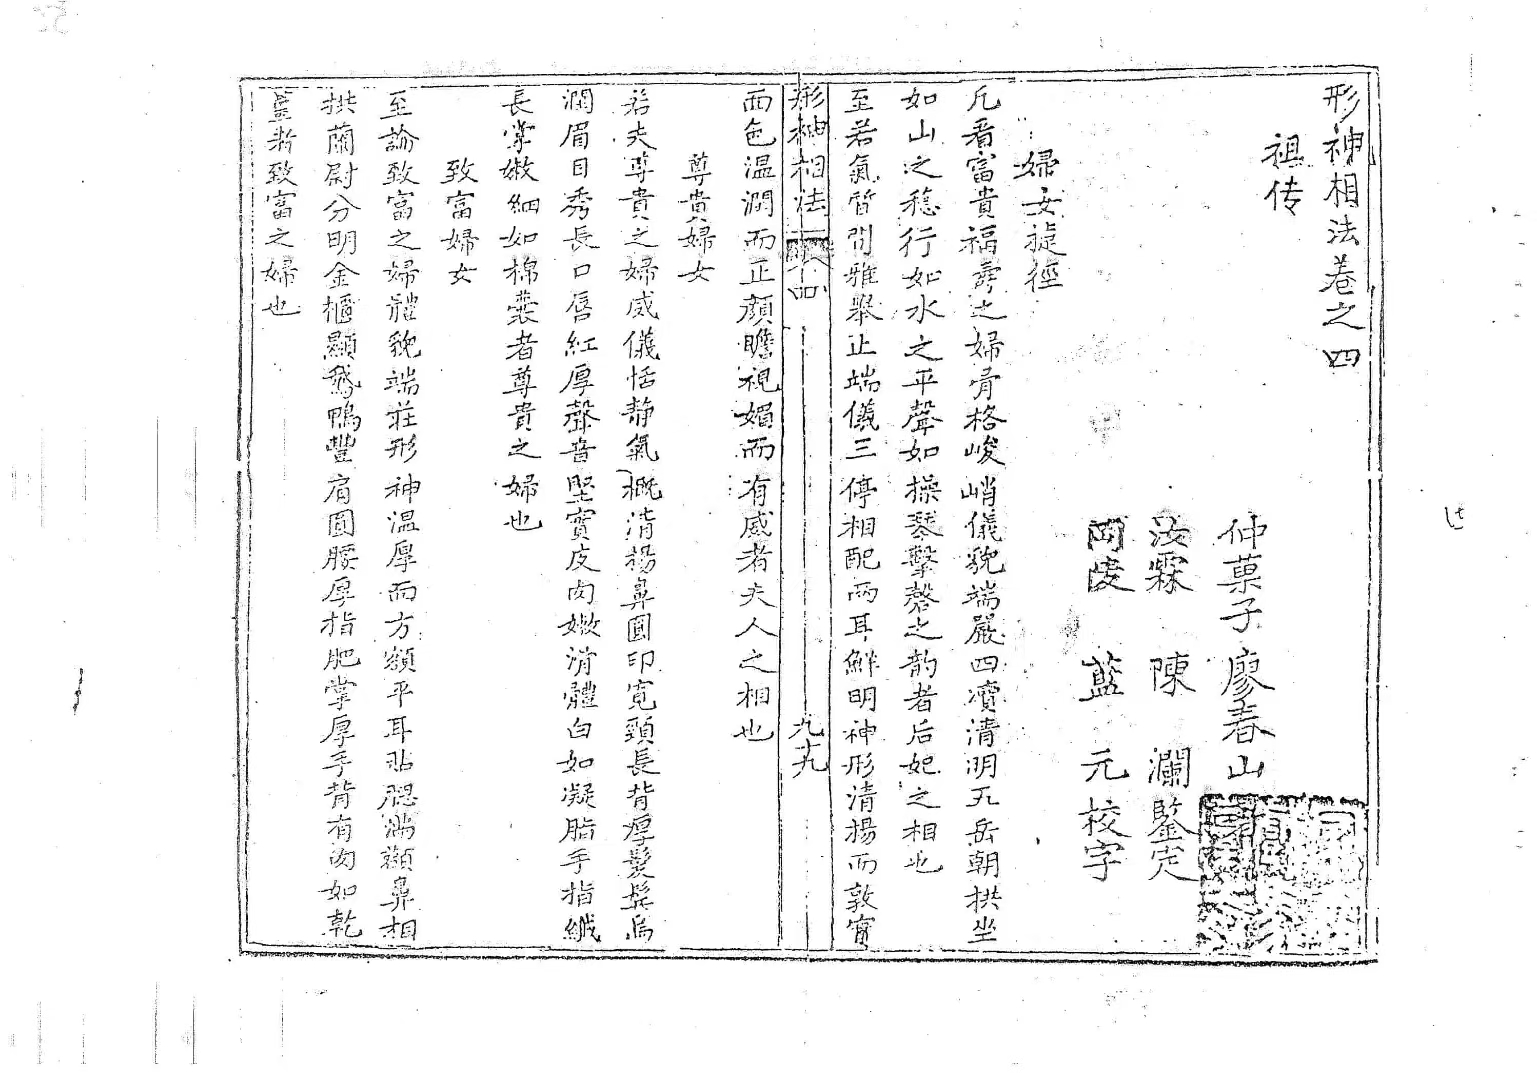 形神相法卷之四
祖传
仲菓子廖春山
汝霖 陳 瀾鑒定
岡陵 藍 元校字
婦女捷徑
凡看富貴福壽之婦骨格峻峭儀貌端嚴四瀆清明五岳朝拱坐
如山之穩行如水之平聲如操琴擊磬之韵者后妃之相也
至若氣質閒雅舉止端儀三停相配兩耳鮮明神形清揚而敦甯
形神相法 卷四 九十九
面色温潤而正顔瞻視媚而有威者夫人之相也
尊貴婦女
若夫尊貴之婦威儀恬静氣概清揚鼻圓印寬頸長背厚髮鬓烏
潤眉目秀長口唇紅厚聲音堅實皮肉嫩滑體白如凝脂手指纖
長掌嫩細如棉囊者尊貴之婦也
致富婦女
至論致富之婦體貌端莊形神温厚而方額平耳貼腮滿顴鼻相
拱蘭尉分明金櫃顯鵞鴨豐肩圓腰厚指肥掌厚手背有肉如乾
薑者致富之婦也